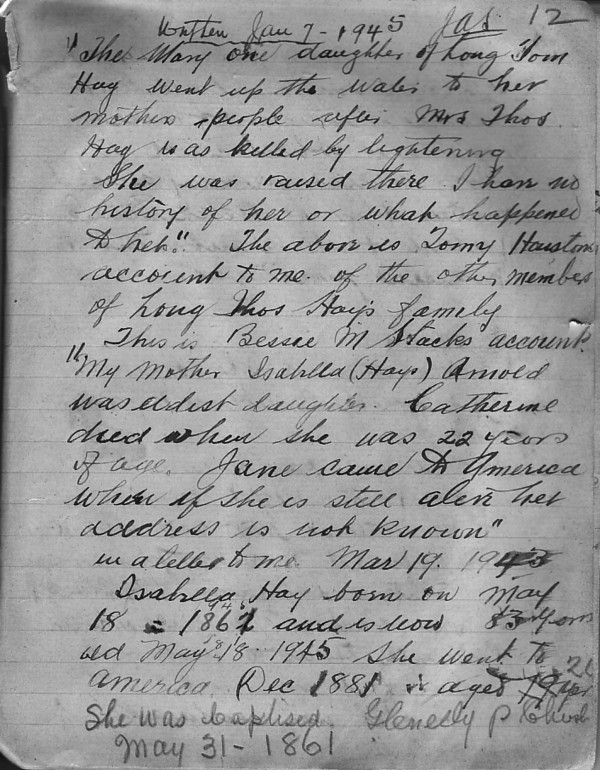 Written Jan 7 - 1945 Jas. 12
"The Mary one daughter of Long Tom
Hay went up the water to her
mothers people after Mrs Thos
Hay was killed by lightening
She was raised there I have no
history of her or what happened
to her." The above is Tomy Houstons
account to me of the other members
of Long Thos Hays family
This is Bessie M Stacks account.
"My mother Isabella (Hays) Arnold
was eldest daughter. Catherine
died when she was 22 years
of age. Jane came to America
when if she is still alive her
address is not known"
in a letter to me Mar 19.
Isabella Hay born on May
18 - 1861 and is now years
old May 18 1945 She went to
America Dec 1881 aged
She was baptised. Glenelly P Church
May 31 - 1861